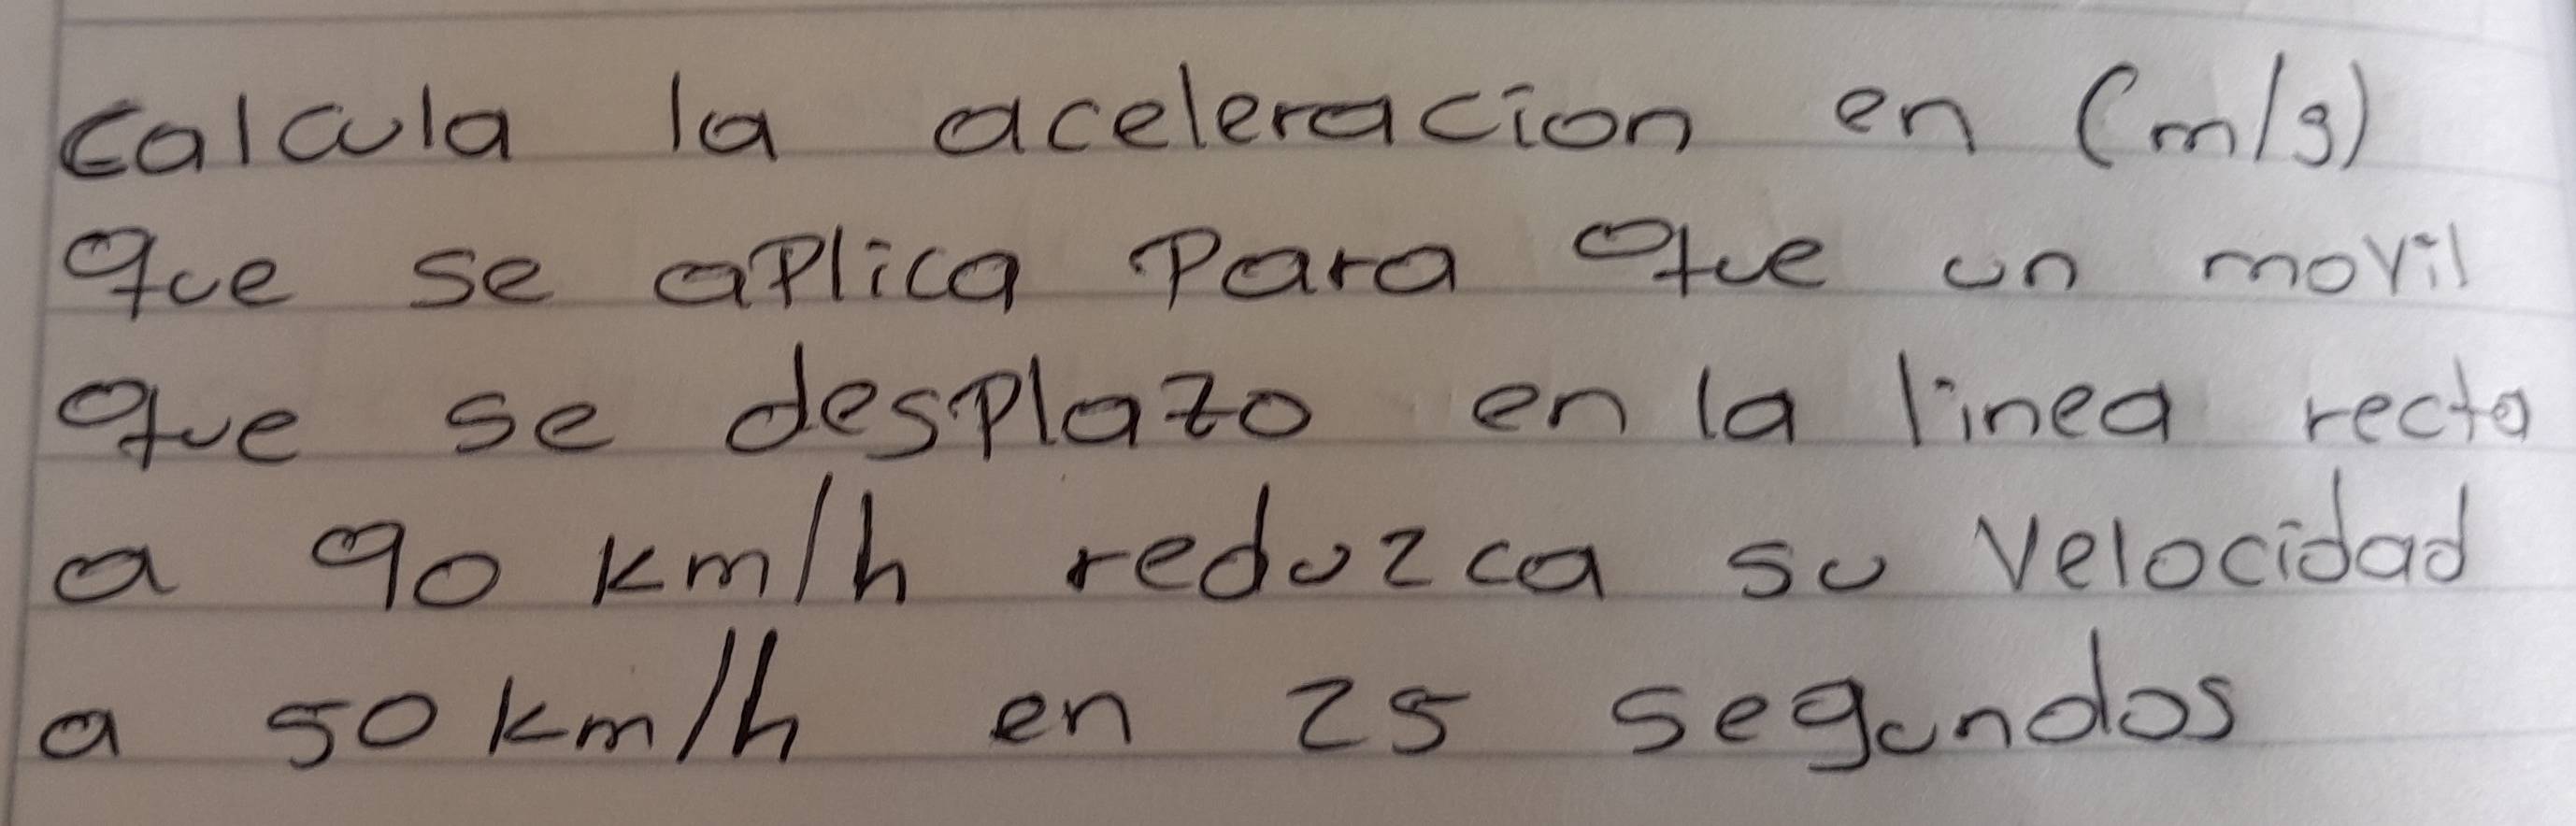 calcula la aceleracion en (m/s)
que se aplica para que un movil
que se desplazo en la linea recta
a 90 km/h reduzca su velocidad
a 50 km/h en 25 segundos